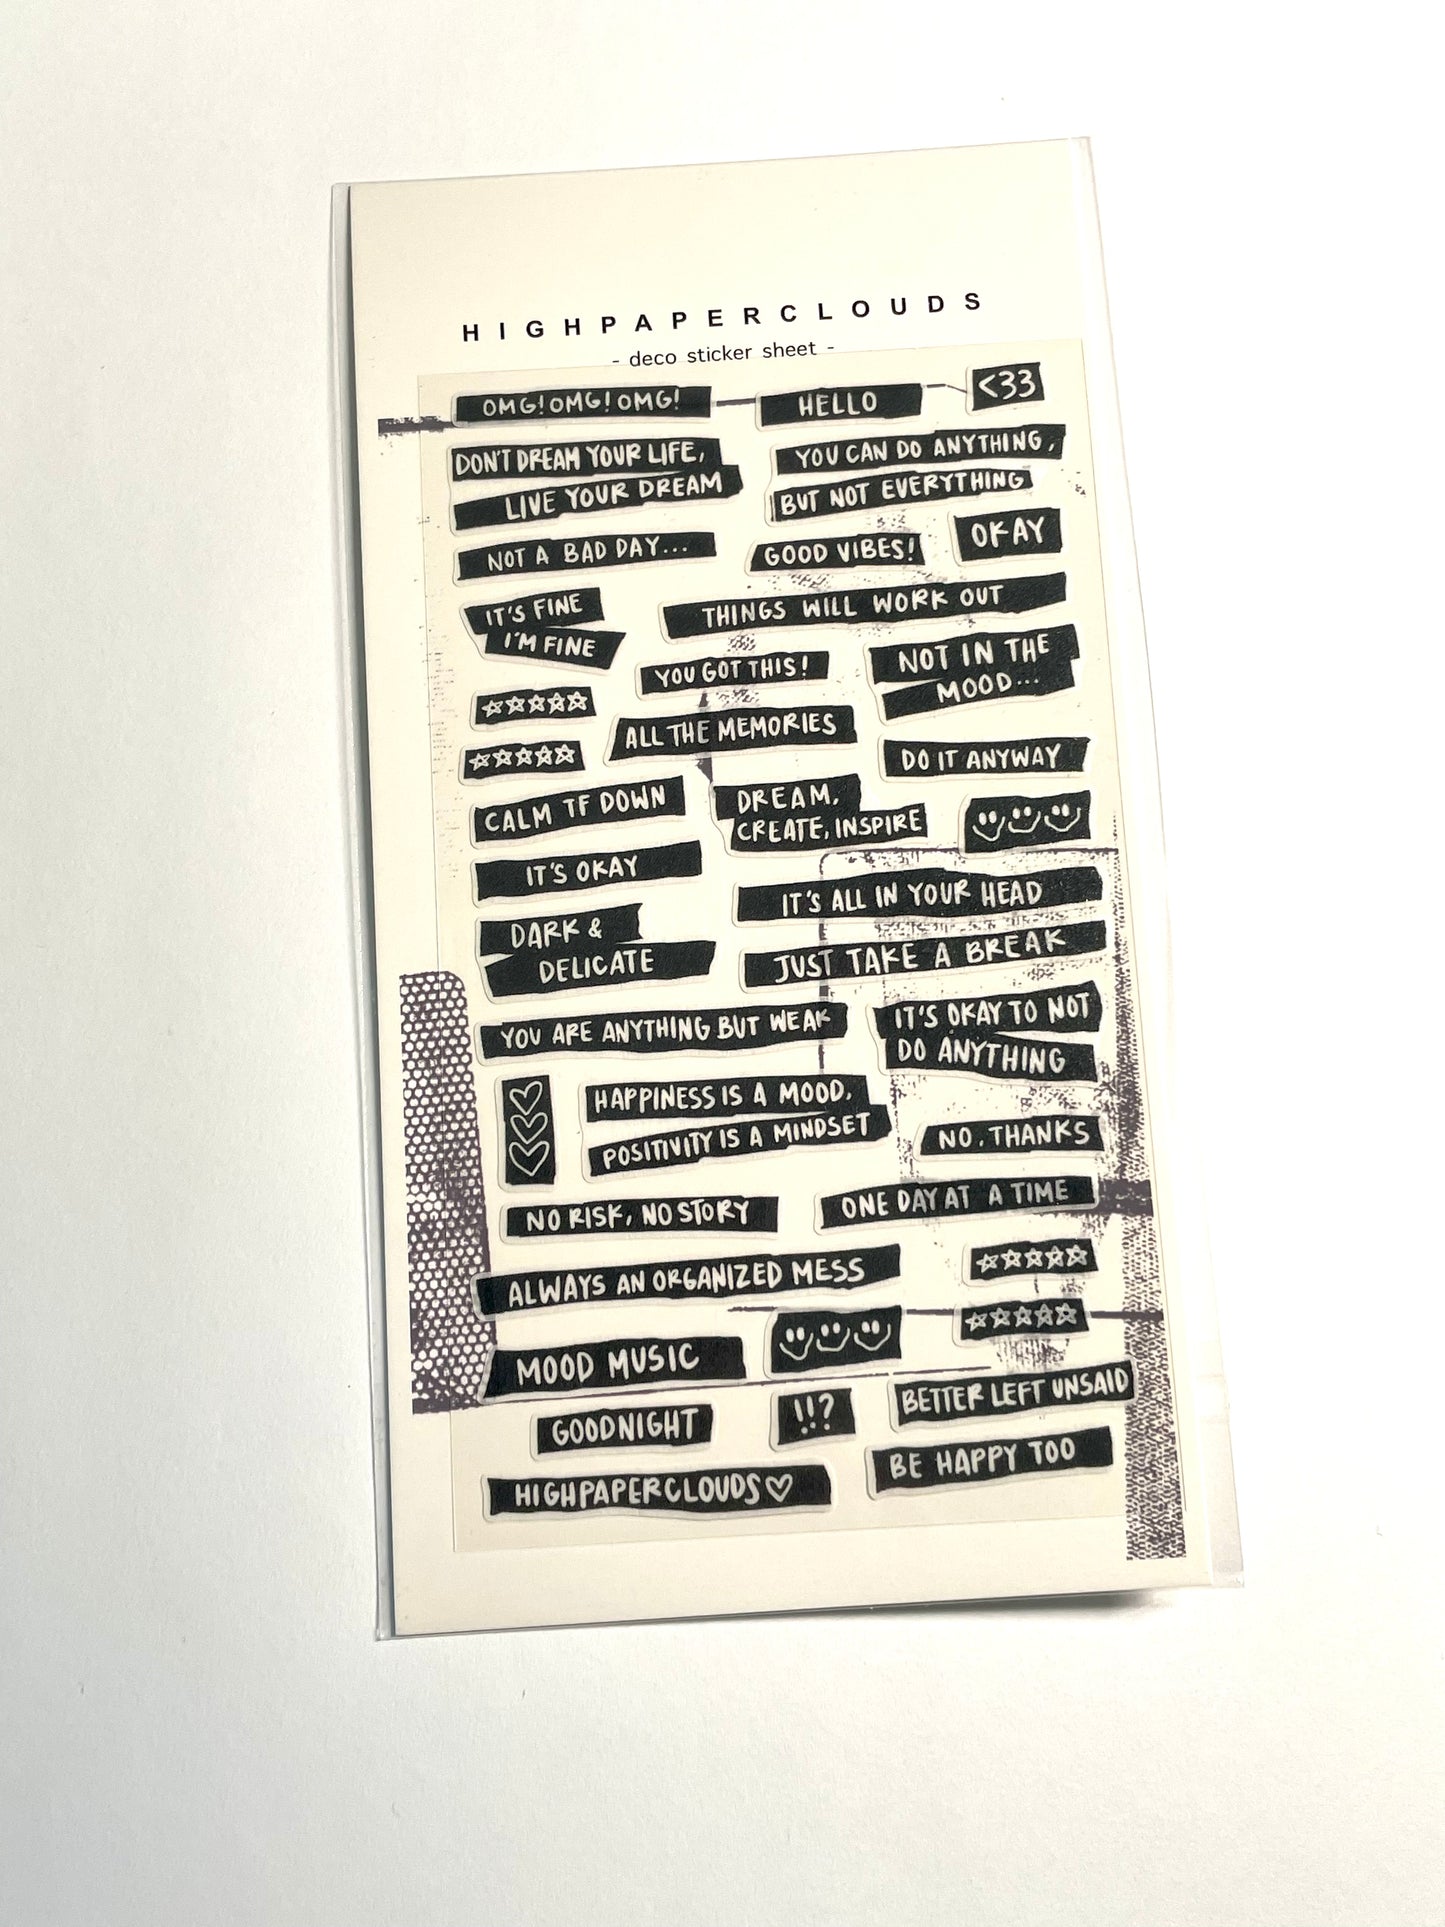 HIGHPAPERCLOUDS
- deco sticker sheet -
OMG! OMG! OMG!
HELLO
<33
DON'T DREAM YOUR LIFE,
LIVE YOUR DREAM
YOU CAN DO ANYTHING,
BUT NOT EVERYTHING
NOT A BAD DAY...
GOOD VIBES!
OKAY
IT'S FINE
I'M FINE
THINGS WILL WORK OUT
YOU GOT THIS!
NOT IN THE
MOOD...
ALL THE MEMORIES
DO IT ANYWAY
CALM TF DOWN
DREAM,
CREATE, INSPIRE
IT'S OKAY
IT'S ALL IN YOUR HEAD
DARK &
DELICATE
JUST TAKE A BREAK
YOU ARE ANYTHING BUT WEAK
IT'S OKAY TO NOT
DO ANYTHING
HAPPINESS IS A MOOD,
POSITIVITY IS A MINDSET
NO. THANKS
NO RISK, NO STORY
ONE DAY AT A TIME
ALWAYS AN ORGANIZED MESS
MOOD MUSIC
GOODNIGHT
!!?
BETTER LEFT UNSAID
HIGHPAPERCLOUDS♡
BE HAPPY TOO